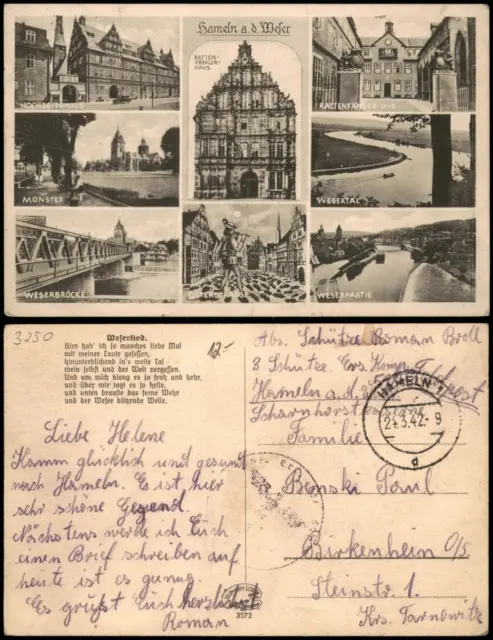 Hameln a.d. Weser
HOCHZEITSHAUS
RATTEN-
FÄNGER-
HAUS
RATTENFÄNGER UHR
MÜNSTER
WESERTAL
WESERBRÜCKE
OSTERSTRASSE
WESERPARTIE
3250
12,-
Weserlied.
Hier hab' ich so manches liebe Mal
mit meiner Laute gesessen,
hinunterblickend in's weite Tal
mein selbst und der Welt vergessen.
Und um mich klang es so froh und hehr,
und über mir tagt es so helle,
und unten brauste das ferne Wehr
und der Weser blitzende Welle.
Liebe Helene
Kamm glücklich und gesunt
nach Hameln. Es ist hier
sehr schöne Gegend.
Nächstens werde ich Euch
einen Brief schreiben auf
heute ist es genug.
Es grüßt Euch herzlichst
Roman
Abs. Schütze Roman Broll
3 Schütze. Ers. Komp.
Hameln a.d.
Scharnhorst
Feldpost
HAMELN 1
24.3.42.-9
d
Familie
Bonski Paul
Birkenhein O/S.
Steinstr. 1.
Krs. Tarnowitz
3572